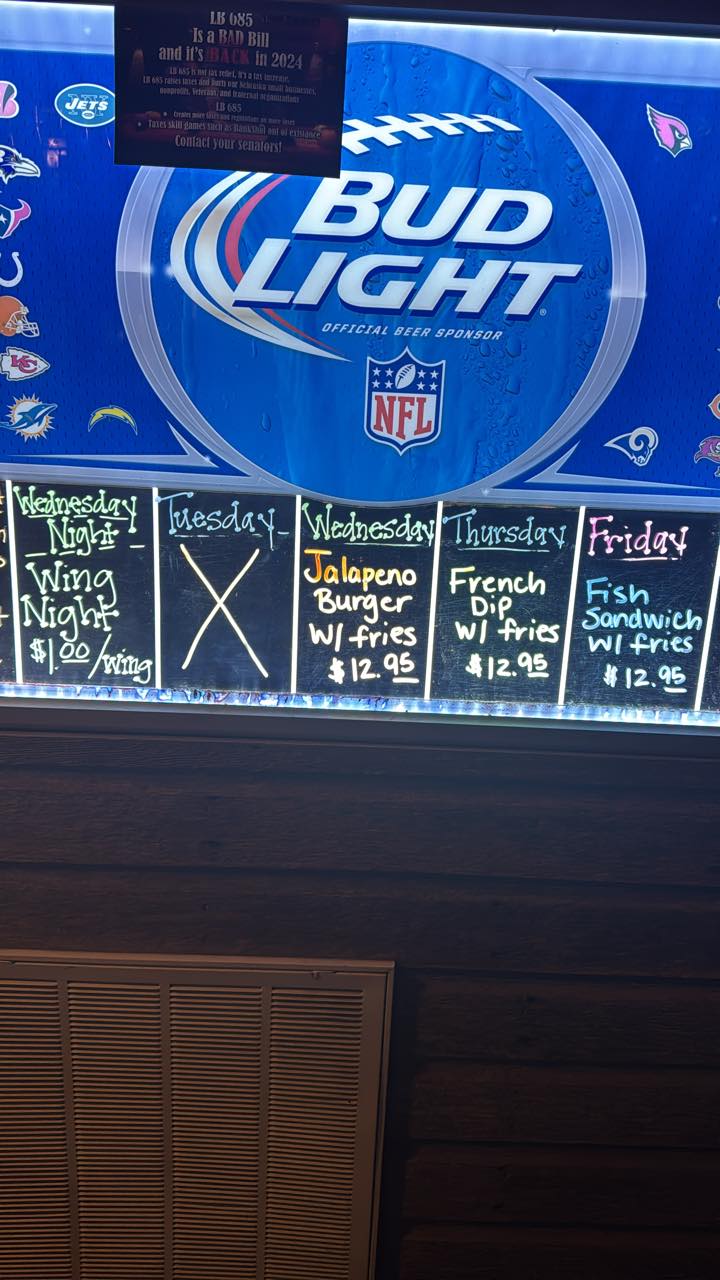 LB 685
Is a BAD Bill
and it's BACK in 2024
LB 685 is not tax relief, it's a tax increase.
LB 685 raises taxes and hurts our Nebraska small businesses,
nonprofits, Veterans, and fraternal organizations
LB 685
• Creates more taxes and regulations on more taxes
• Taxes skill games such as BankShot out of existance
Contact your senators!
JETS
NY
BUD
LIGHT
OFFICIAL BEER SPONSOR
NFL
KC
Wednesday
Night
Wing
Night
$1.00/wing
Tuesday
X
Wednesday
Jalapeno
Burger
W/ fries
$12.95
Thursday
French
Dip
w/ fries
$12.95
Friday
Fish
Sandwich
W/ fries
$12.95